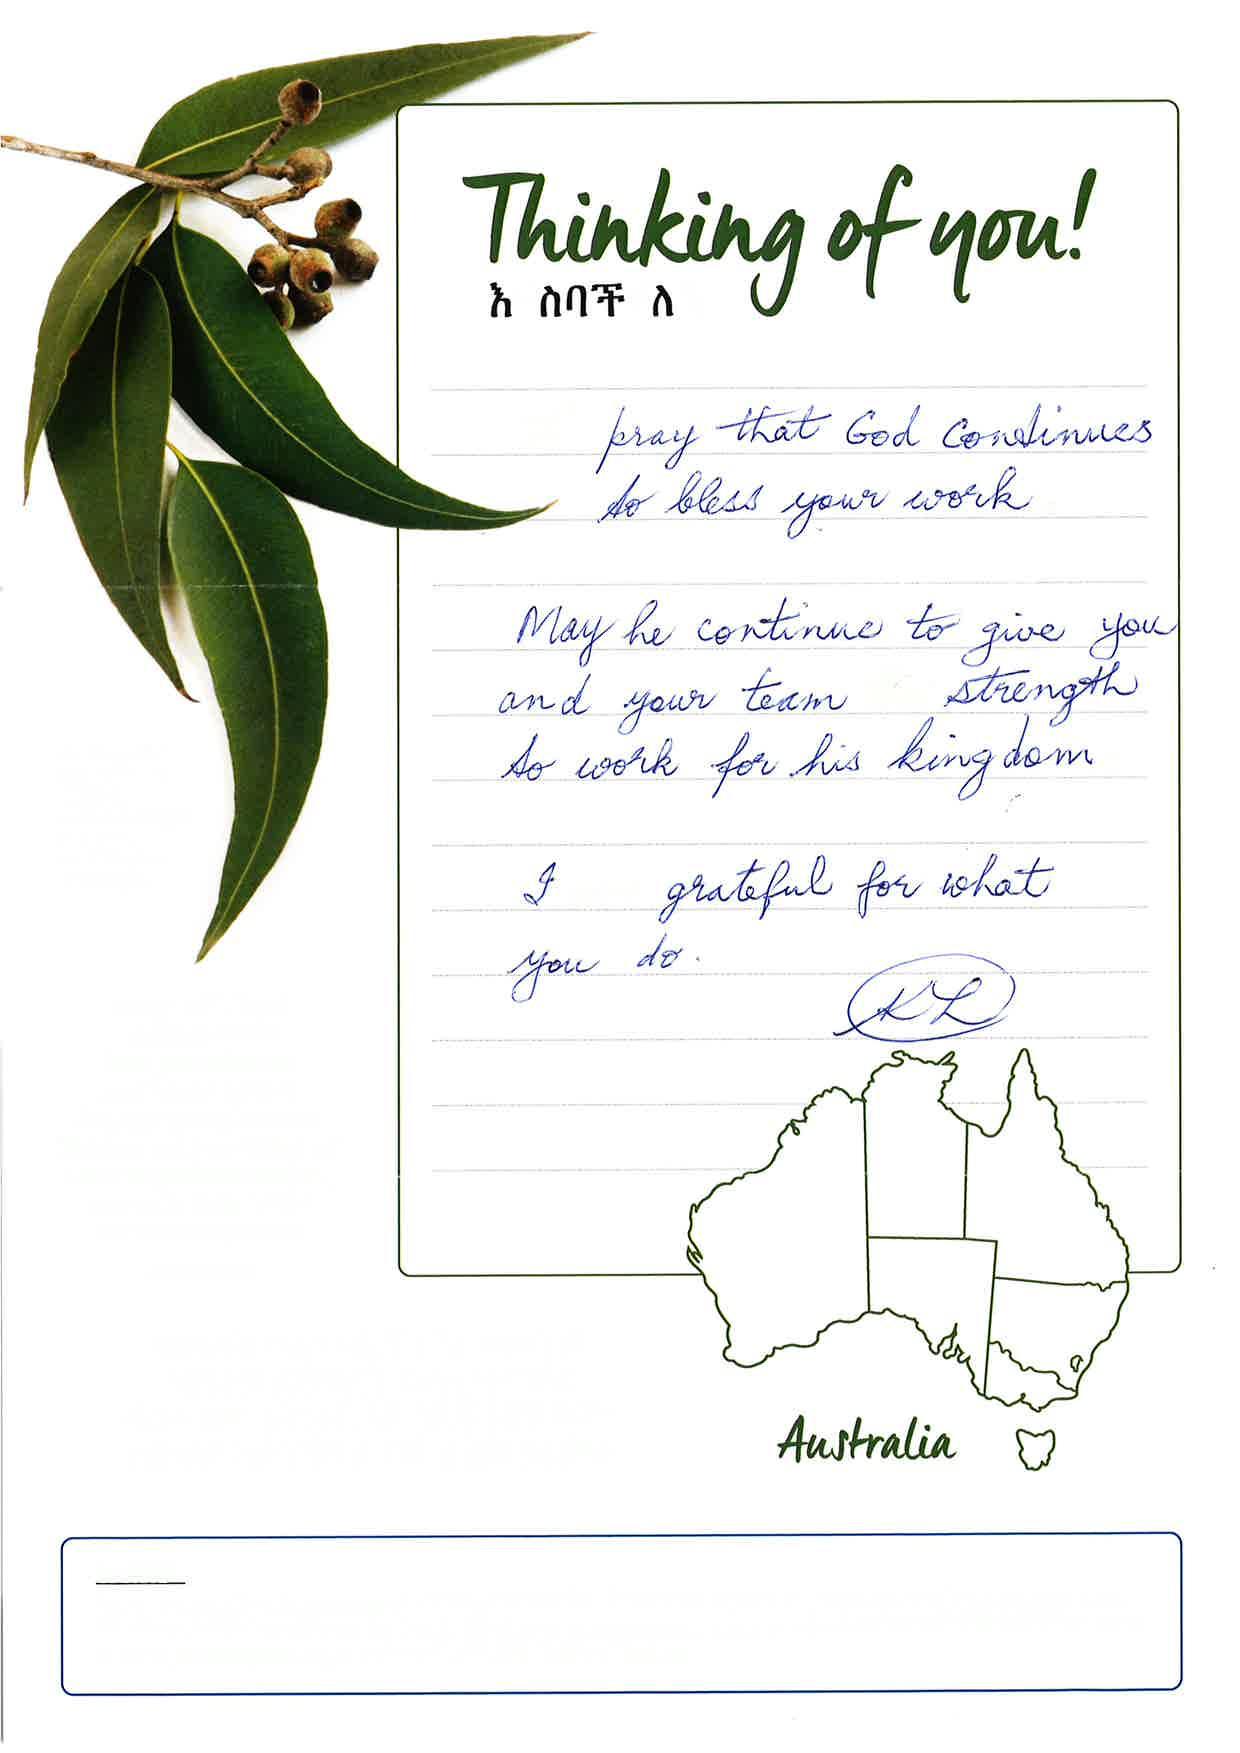 Thinking of you!
እ ስባቸ ለ
pray that God continues
to bless your work
May he continue to give you
and your team strength
to work for his kingdom
I grateful for what
you do.
KL
Australia